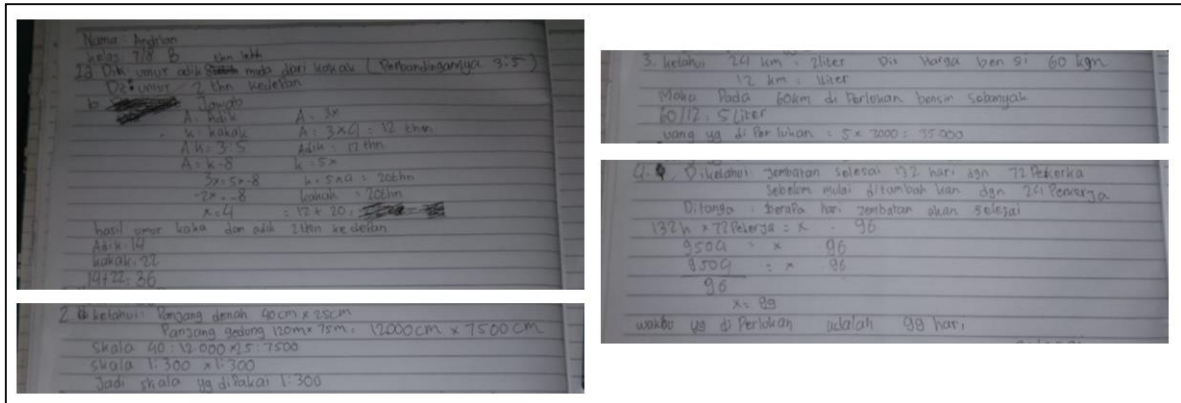 Nama : Andrian
kelas 7/8 B
Dik umur adik muda dari kakak (Perbandingannya 3:5)
umur 2 thn kedepan
b Jawab
A: Adik A: 3x
k: kakak A: 3x4 = 12 thn
A k = 3:5 Adik = 12 thn
A = k-8 k = 5x
3x = 5x-8 k = 5x4 = 20thn
-2x = -8 kakak = 20thn
x = 4 = 12 + 20 =
hasil umur kaka dan adik 2thn kedepan
Adik: 14
kakak: 22
14+22: 36
2. ketahui: Panjang denah 40cm x 25cm
Panjang gedung 120m x 75m = 12000cm x 7500 cm
Skala 40 : 12.000 x 25 : 7500
skala 1:300 x 1:300
Jadi skala yg dipakai 1:300
3. ketahui 24 km = 2liter Dit Harga ben si 60 kgm
12 km = liter
Maka Pada 60km di Perlukan bensin sebanyak
60/12 = 5 liter
uang yg di Perlukan = 5 x 7000 = 35 000
4. Diketahui: Jembatan selesai 132 hari dgn 72 Pekerka
Sebelum mulai ditambah kan dgn 24 Pekerja
Ditanya : berapa hari Jembatan akan selesai
132 h x 72 Pekerja = x . 96
9504 = x 96
9504 = x 96
96
x = 99
waktu yg di Perlukan adalah 99 hari